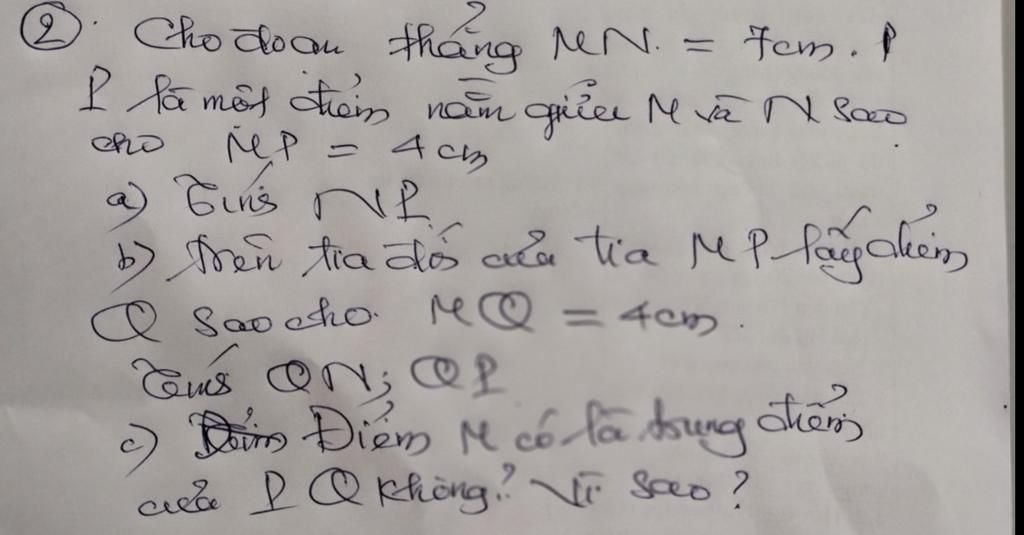 ② Cho đoạn thẳng MN = 7cm. P
P là một điểm nằm giữa M và N sao
cho MP = 4cm
a) Tính NP
b) Trên tia đối của tia MP lấy điểm
Q sao cho MQ = 4cm.
Tính QN; QP
c) Điểm M có là trung điểm
của PQ không? Vì sao?